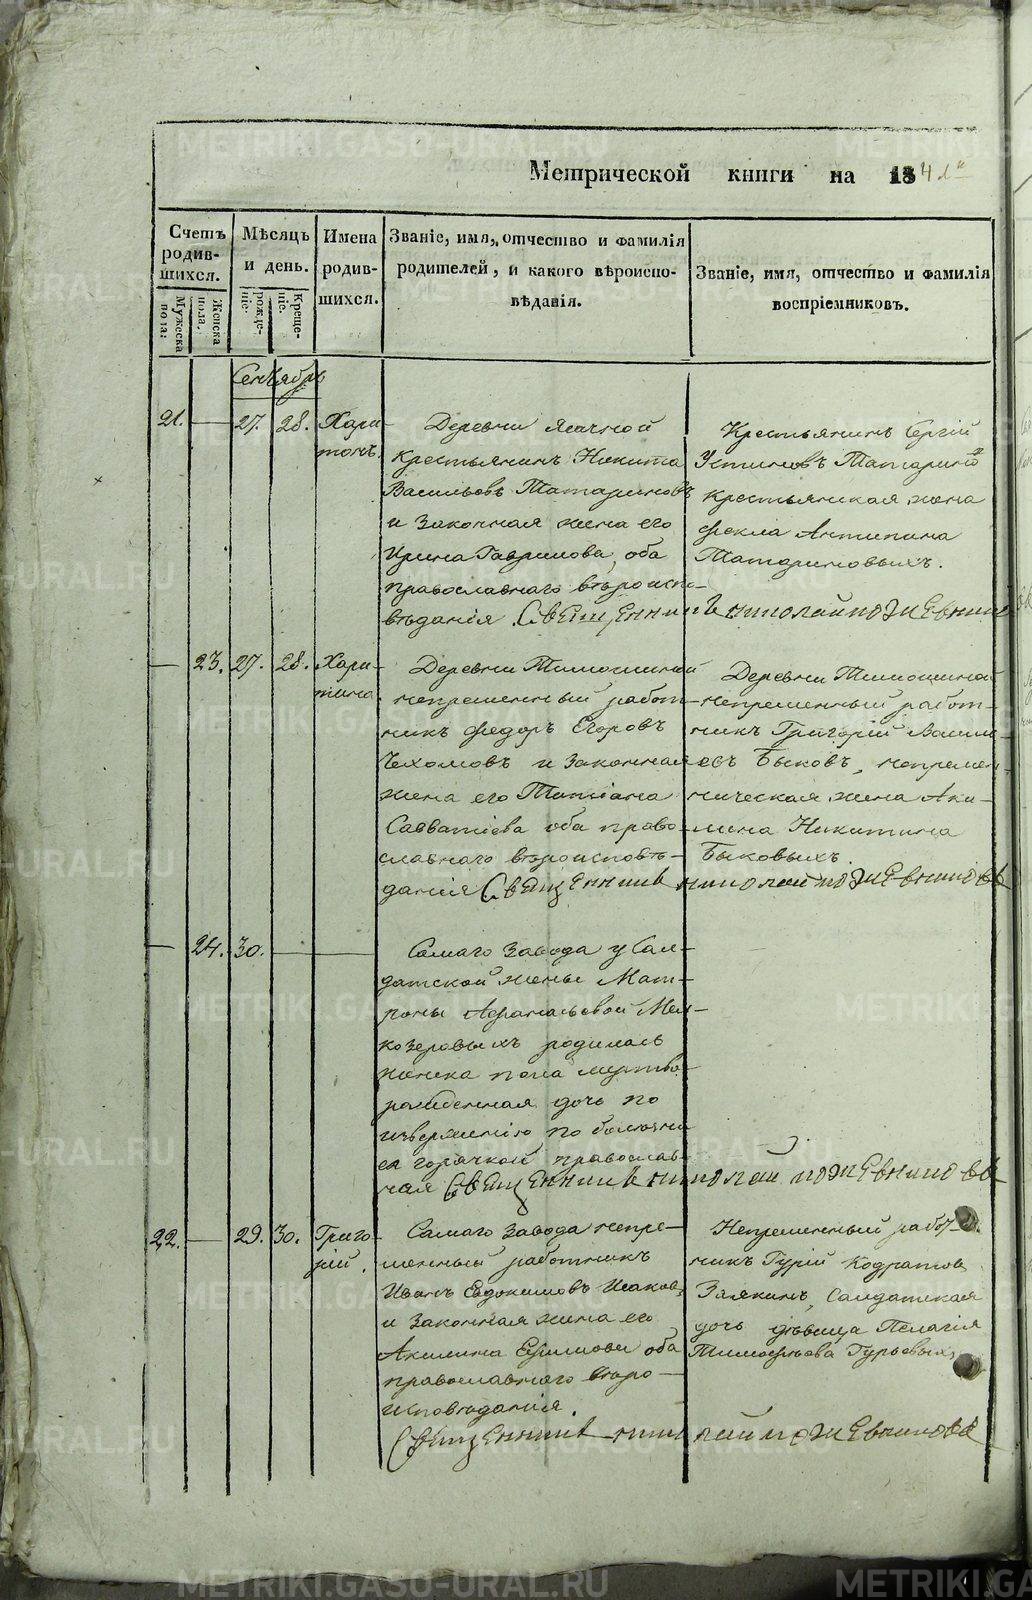 Метрической книги на 1841й
Счетъ родив-шихся.
Мужеска пола:
Женска пола.
Мѣсяцъ и день.
рожде-ніе.
Креще-ніе.
Имена родив-шихся.
Званіе, имя, отчество и фамилія
родителей, и какого вѣроиспо-
вѣданія.
Званіе, имя, отчество и фамилія
воспріемниковъ.
Сентябрь
21. — 27. 28. Хари-
тонъ.
Деревни Ясачной
крестьянинъ Никита
Васильевъ Татариновъ
и законная жена его
Ирина Гаврилова, оба
православнаго вѣроиспо-
вѣданія
Крестьянинъ Сергій
Устиновъ Татаринов
крестьянская жена
Фекла Антипина
Татариновыхъ.
Священникъ николай пожевников
— 23. 27. 28. Хари-
тина
Деревни Тимошиной
непременный работ-
никъ Федоръ Егоровъ
Чехомовъ и законная
жена его Татіана
Савватіева оба право-
славнаго вѣроисповѣ-
данія
Деревни Тимошиной
непременный работ-
никъ Григорій Василь-
евъ Быковъ, непремен-
ническая жена Аку-
лина Никитина
Быковыхъ.
Священникъ николай пожевниковъ
— 24. 30. — —
Самаго завода у сал-
датской жены Мат-
роны Афанасьевой Мел-
козеровыхъ родилась
женска пола мертво-
рожденная дочь по
извержению по болезни
ея горячкой православ-
ная
Священникъ николай пожевниковъ
22. — 29. 30. Григо-
рій.
Самаго завода непре-
менный работникъ
Иванъ Евдокимовъ Исаковъ
и законная жена его
Акилина Ефимова оба
православнаго вѣро-
исповѣданія.
Непременный работ-
никъ Гурій Кодратов
Заякинъ, салдатская
дочь дѣвица Пелагія
Тимофѣева Гурьевыхъ
Священникъ николай пожевниковъ
METRIKI.GASO-URAL.RU